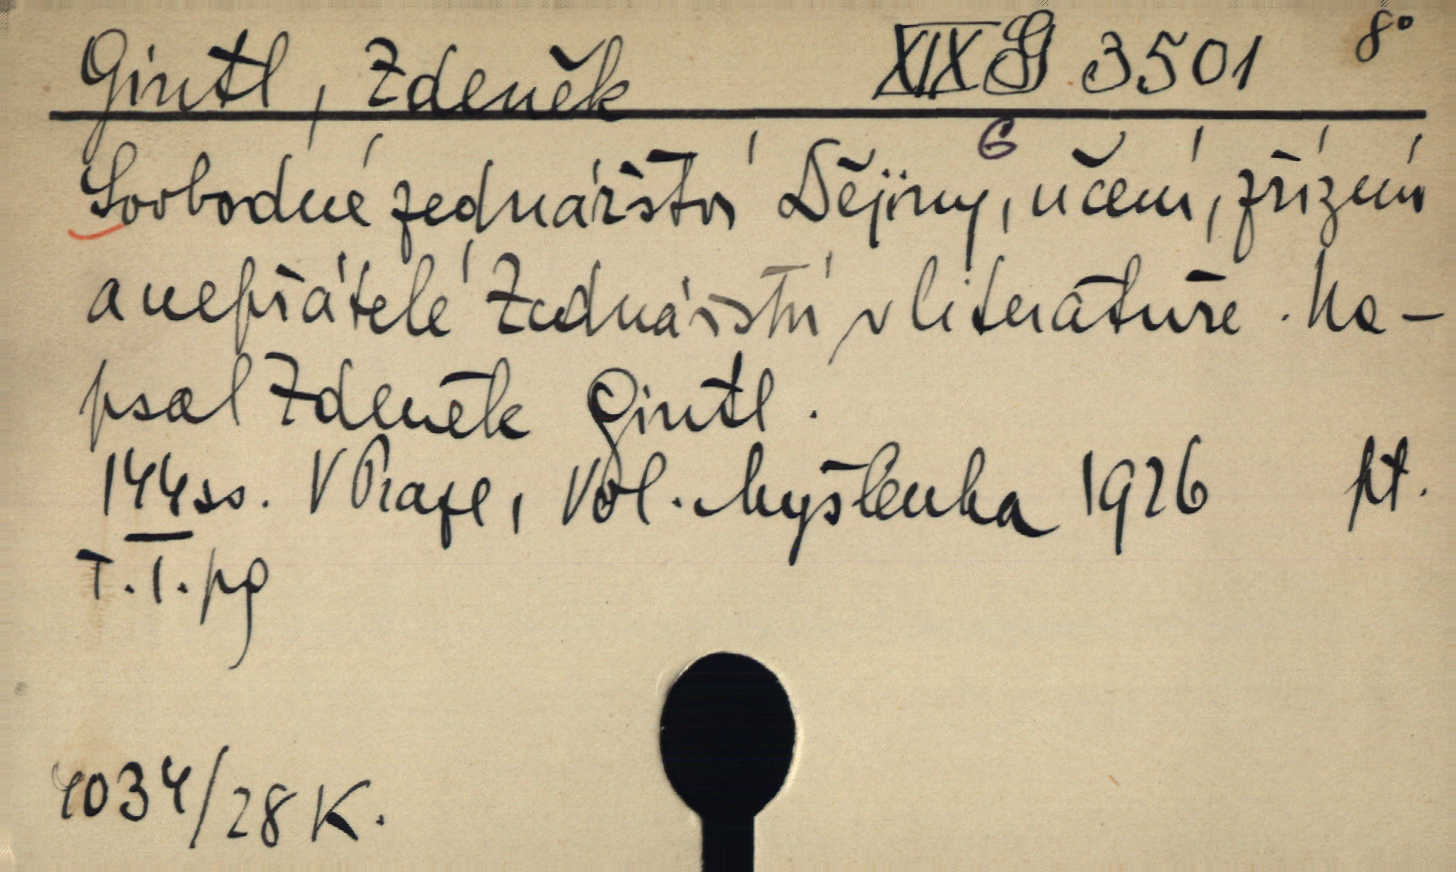 Gintl, Zdeněk XIX G 3501 8°
6
Svobodné zednářství Dějiny, učení, zřízení
a nepřátelé Zednářství v literatuře. Na-
psal Zdeněk Gintl.
144 ss. V Praze, Vol. Myšlenka 1926 pt.
T. I. pg
4034/28 K.